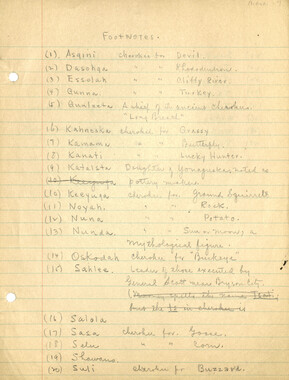 FOOTNOTES.
(1) Asgoni cherokee for Devil.
(2) Dasohga " " Rhododendrons.
(3) Essolah " " Cliffy River
(4) Gunna " " Turkey.
(5) A chief of the ancient Cherokees
"Long Beard."
(6) Kahneska cherokee for Grassy
(7) Kamama " " Butterfly.
(8) Kanati " " Lucky Hunter.
(9) Katalsta Daughter of Yonaguskee, noted as
pottery maker.
(10) Keeyuga cherokee for Ground Squirrel
(11) Noyah " " Rock.
(12) Nuna " " Potato.
(13) Nunda " " Sun or moon, a
mythological figure.
(14) Oskodah cherokee for Buckeye
(15) Sahlee. Leader of those executed by
General Scott near Bryson City.
(16) Salola
(17) Sasa cherokee for Goose.
(18) Selu " " corn.
(19) Shawano
(20) Suli cherokee for Buzzard.